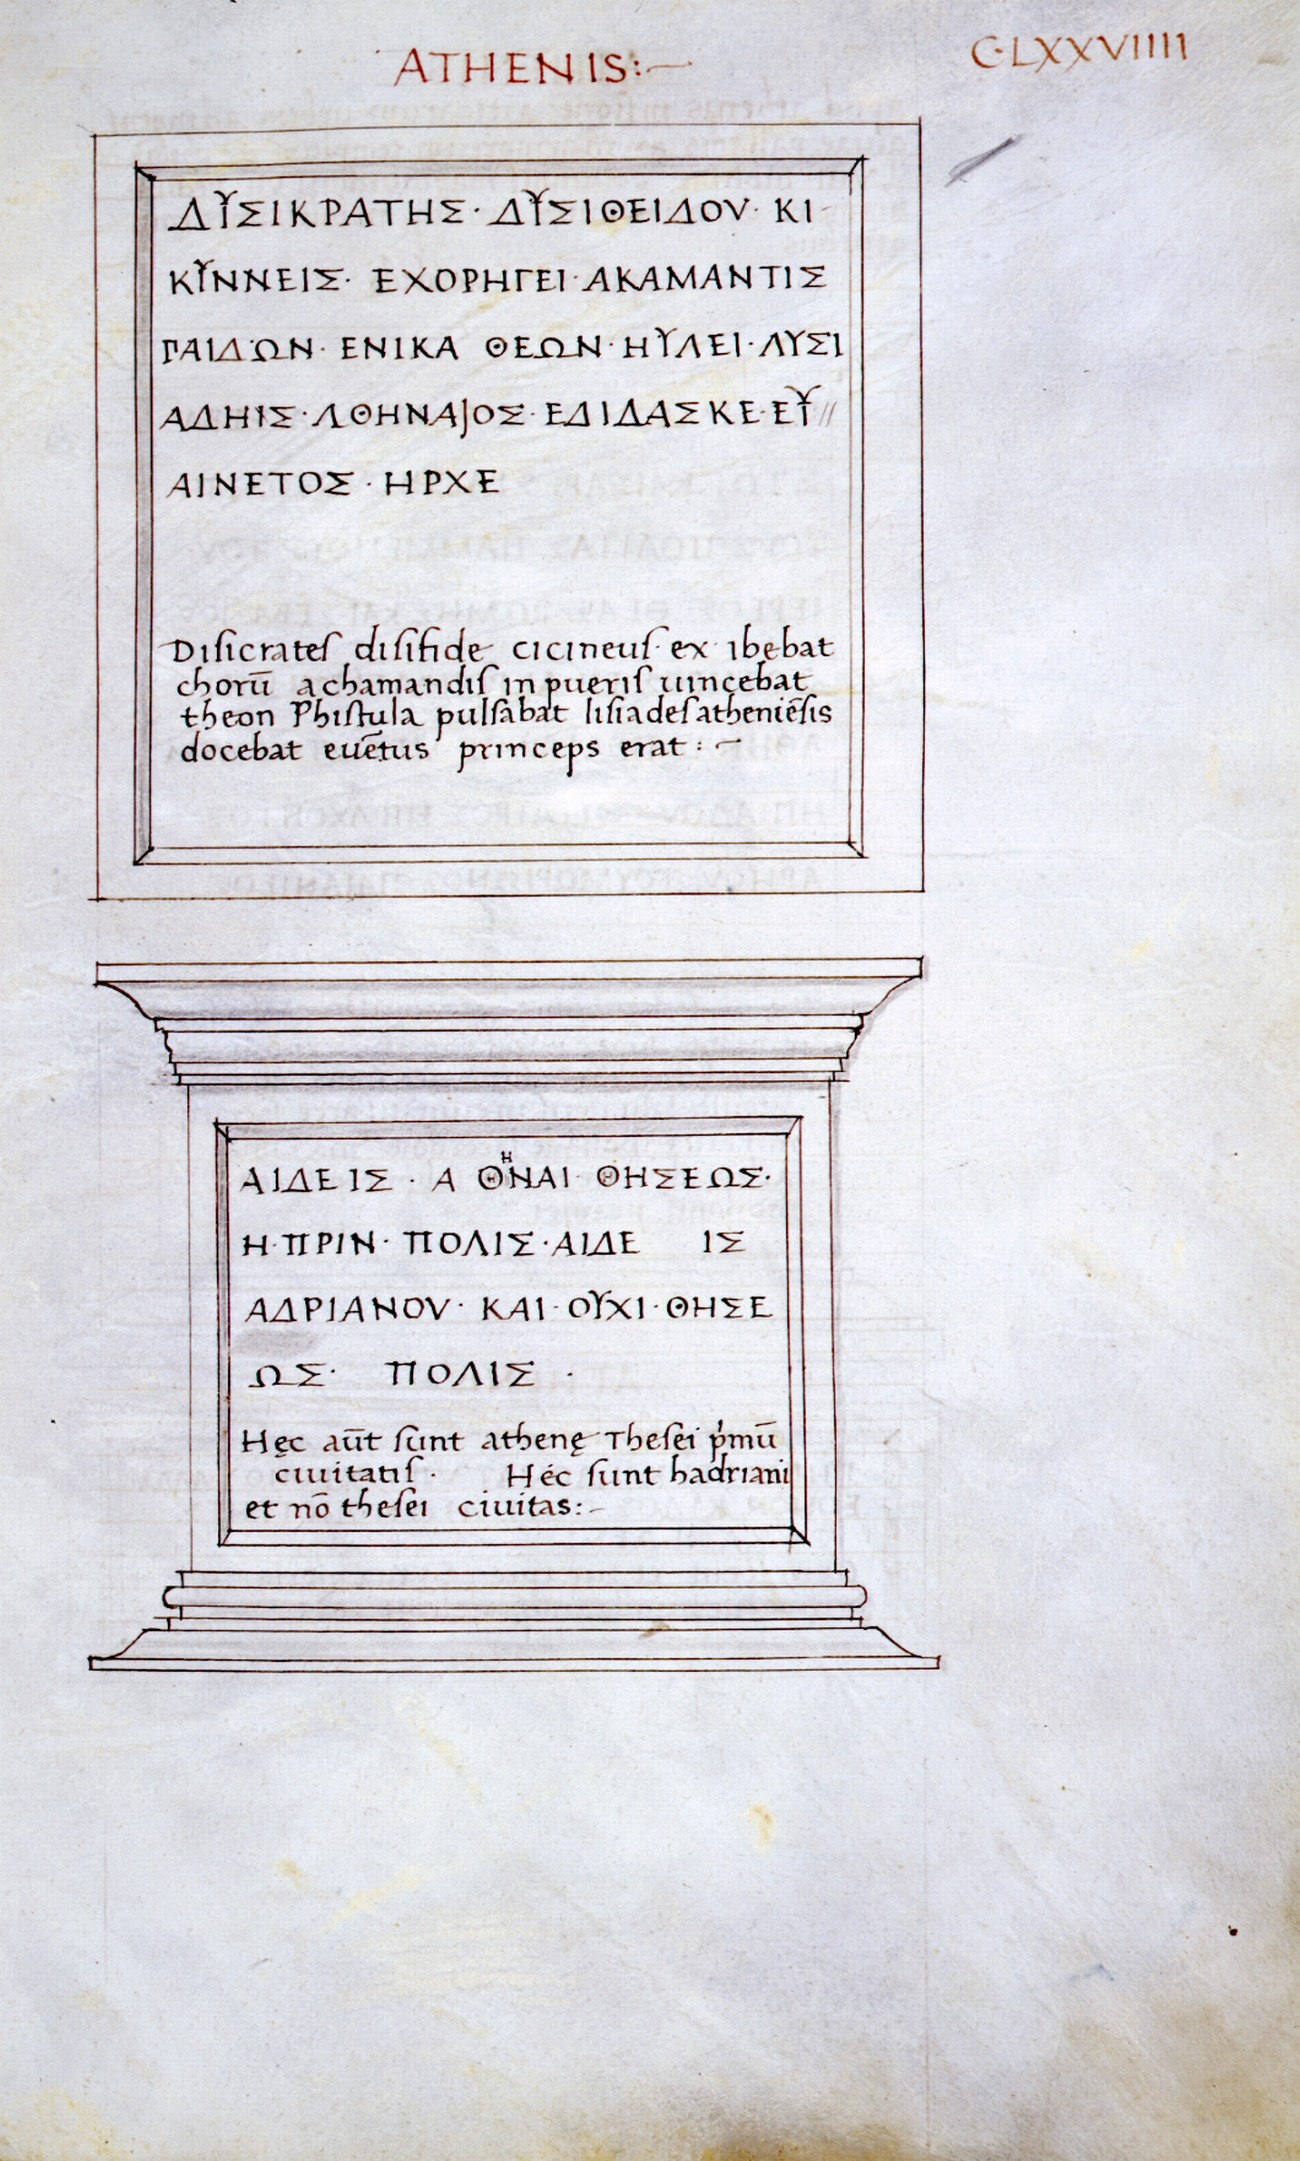 ATHENIS:—
C·LXXVIIII
ΔΥΣΙΚΡΑΤΗΣ · ΔΥΣΙΘΕΙΔΟV · ΚΙ-
ΚΥΝΝΕΙΣ · ΕΧΟΡΗΓΕΙ · ΑΚΑΜΑΝΤΙΣ
ΓΑΙΔΩΝ · ΕΝΙΚΑ ΘΕΩΝ · ΗΥΛΕΙ · ΛΥΣΙ
ΑΔΗΙΣ · ΛΘΗΝΑΙΟΣ · ΕΔΙΔΑΣΚΕ · ΕΥ//
ΑΙΝΕΤΟΣ · ΗΡΧΕ
Diſicrateſ diſifide cicineuſ ex ibebat
chorū achamandiſ in pueriſ uincebat
theon Phiſtula pulſabat liſiadeſ atheniēſis
docebat euētus princeps erat : —
ΑΙΔΕ ΙΣ · Α ΘΗΝΑΙ · ΘΗΣΕΩΣ ·
Η · ΠΡΙΝ · ΠΟΛΙΣ · ΑΙΔΕ ΙΣ
ΑΔΡΙΑΝΟV · ΚΑΙ · ΟΥΧΙ · ΘΗΣΕ
ΩΣ · ΠΟΛΙΣ ·
Hęc aūt ſunt athenę Theſei p̓mū
ciuitatiſ · Héc ſunt hadriani
et nō theſei ciuitas:—